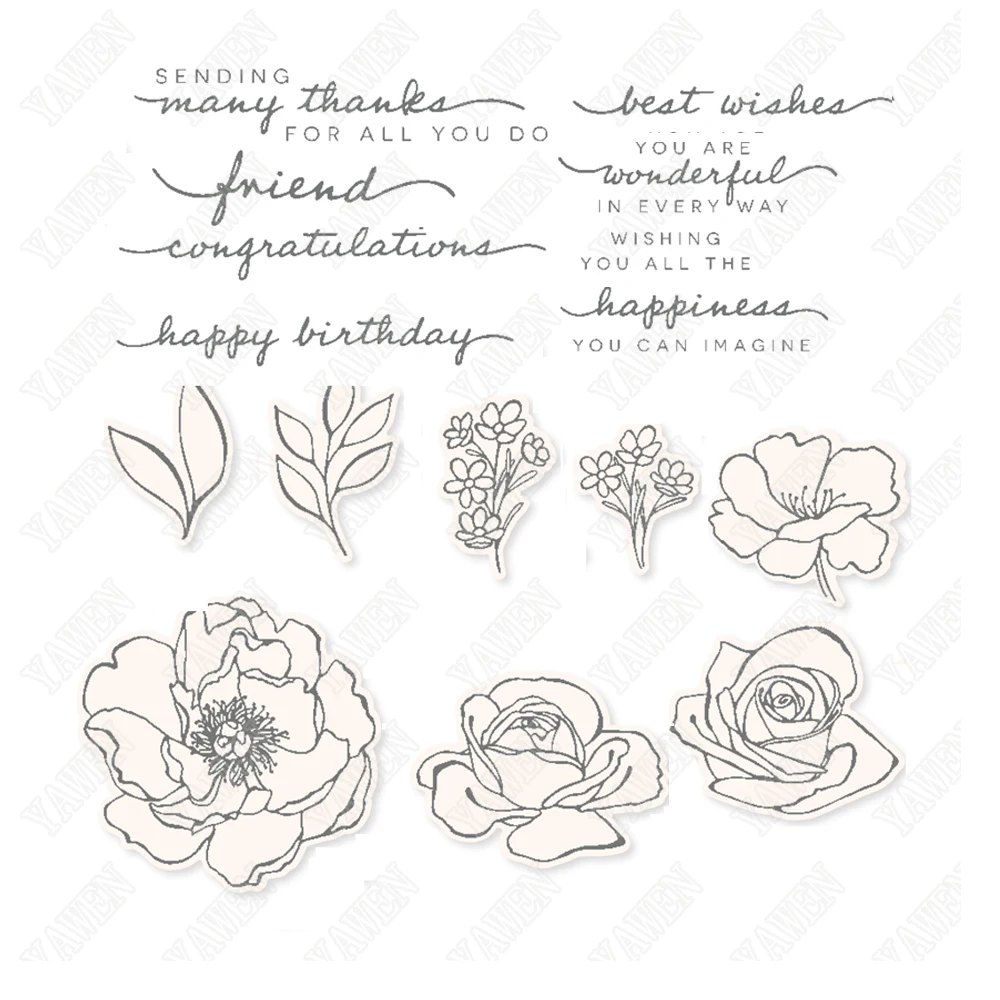 SENDING
many thanks
FOR ALL YOU DO
friend
congratulations
happy birthday
best wishes
YOU ARE
wonderful
IN EVERY WAY
WISHING
YOU ALL THE
happiness
YOU CAN IMAGINE
YAWEN